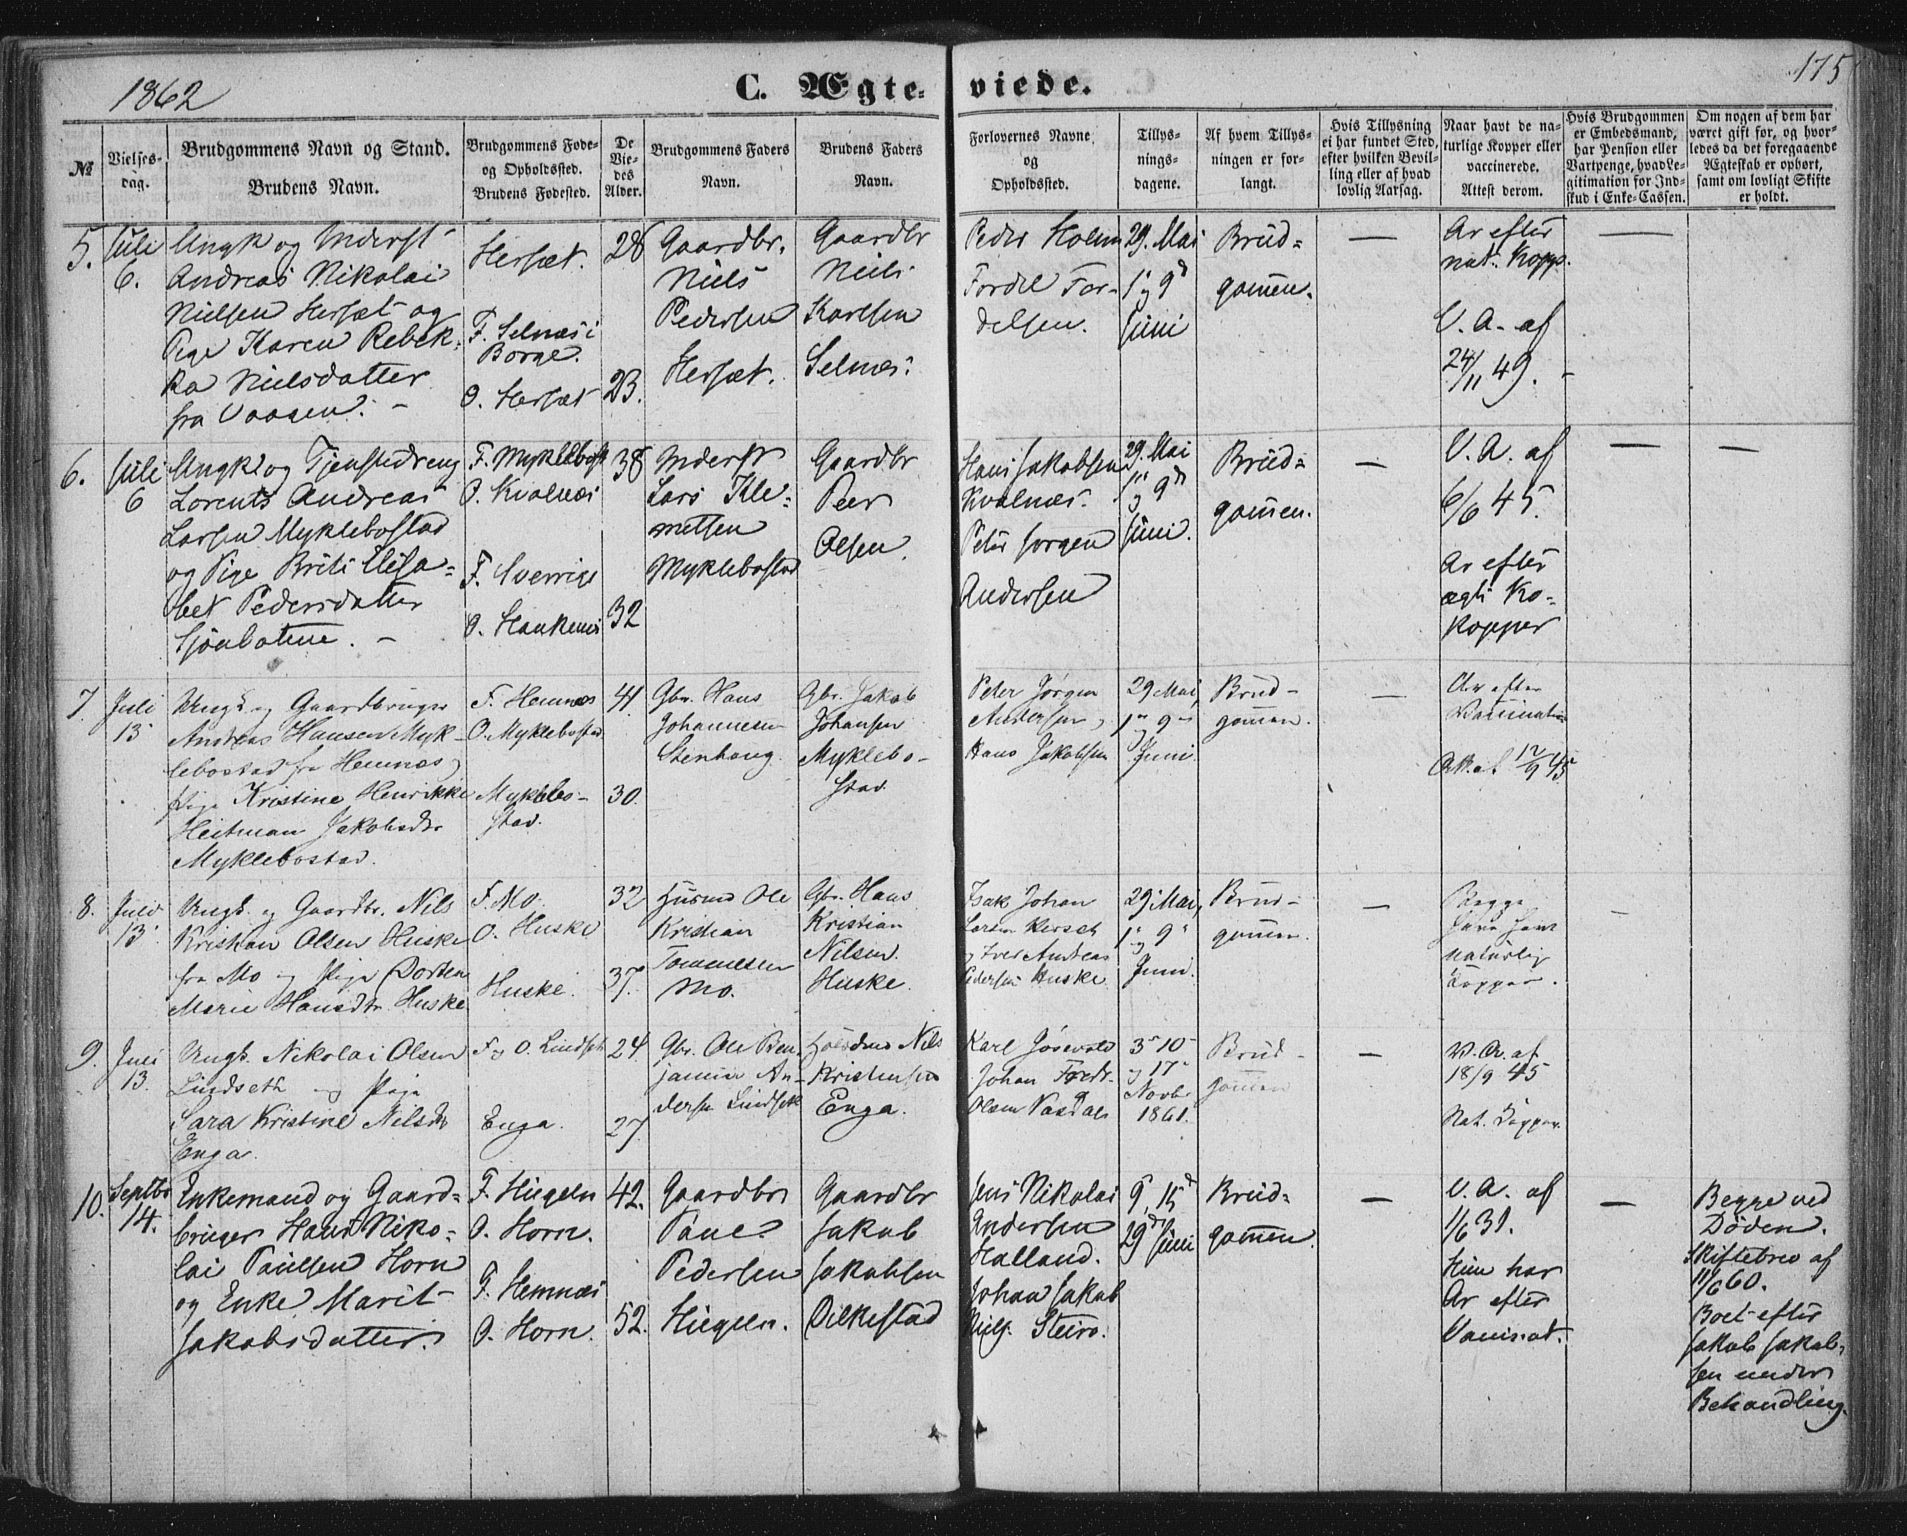 1862
C. Ægte-
viede.
175
№
Vielses-
dag.
Brudgommens Navn og Stand.
Brudens Navn.
Brudgommens Føde-
og Opholdssted.
Brudens Fødested.
De
Vie-
des
Alder.
Brudgommens Faders
Navn.
Brudens Faders
Navn.
Forlovernes Navne
og
Opholdssted.
Tillys-
nings-
dagene.
Af hvem Tillys-
ningen er for-
langt.
Hvis Tillysning
ei har fundet Sted,
efter hvilken Bevil-
ling eller af hvad
lovlig Aarsag.
Naar havt de na-
turlige Kopper eller
vaccinerede.
Attest derom.
Hvis Brudgommen
er Embedsmand,
har Pension eller
Vartpenge, hvad Le-
gitimation for Ind-
skud i Enke-Cassen.
Om nogen af dem har
været gift før, og hvor-
ledes da det foregaaende
Ægteskab er ophørt,
samt om lovligt Skifte
er holdt.
5.
Juli
6.
Ungk og Inderst
Andreas Nikolai
Nielsen Hersæt og
Pige Karen Rebek-
ka Nielsdatter
fra Vaasen. -
Hersæt.
F. Selnæs i
Borge.
O. Hersæt
28
23.
Gaardbr.
Niels
Pedersen
Hersæt.
Gaardbr
Niels
Karlsen
Selnæs.
Peder Holm
Fordel For-
delsen.
29. Mai
1. og 9d
Juni
Brud-
gommen.
—
Ar efter
nat. Kopp.
V. A. af
24/11 49. -
—
6.
Juli
6
Ungk. og Tjenstedreng
Lorents Andreas
Larsen Myklebostad
og Pige Brita Elisa-
bet Pedersdatter
Sjonbotne. -
F. Myklebost
O. Kvalnæs
F. Sverrige
O. Haukenes
38
32
Inderst
Lars Kle-
metsen
Myklebostad
Gaardbr
Peer
Olsen.
Hans Jakobsen
Kvalnæs.
Peter Jørgen
Andersen
29. Mai
1. og 9d
Juni.
Brud-
gommen.
—
V. A. af
6/6 45.
Ar efter
ægte Ko-
kopper
—
—
7.
Juli
13.
Ungk. og Gaardbruger
Andreas Hansen Myk-
lebostad fra Hemnæs og
Pige Kristine Henrikke
Heitman Jakobsdtr
Myklebostad.
F. Hemnæs
O. Myklebostad
Myklebo-
stad.
41.
30.
Gbr. Hans
Johannesen
Stenhaug.
Gbr. Jakob
Johansen
Myklebo-
stad.
Peter Jørgen
Andersen,
Hans Jakobsen
29 Mai,
1. og 9.
Juni
Brud-
gommen.
—
Ar efter
Vaccination
12/9 45
8.
Juli
13.
Ungk. og Gaardbr. Nils
Kristian Olsen Huske
fra Mo og Pige Dorthea
Marie Hansdtr Huske
F. Mo.
O. Huske
Huske.
32
37.
Husmd Ole
Kristian
Tommesen
Mo.
Gbr. Hans
Kristian
Nilsen
Huske.
Isak Johan
og Iver Andreas
Pedersen Huske.
29. Mai,
1. og 9.
Juni.
Brud-
gommen.
—
Begge
naturlig
Kopper.
—
9.
Juli
13.
Ungk. Nikolai Olsen
Lindseth og Pige
Sara Kristine Nilsdtr
Enga.
F. og O. Lindseth
Enga.
24
27.
Gbr. Ole Ben-
jamin An-
dersen Lindseth
Nils
Kristensen
Enga.
Karl
Johan Fredr.
Olsen Vasdal
3. 10.
og 17.
Novbr
1861.
Brud-
gommen
—
V. A. af
18/9 45
Nat. Kopper.
10.
Septbr
14.
Enkemand og Gaard-
bruger Hans Niko-
lai Paulsen Horn
og Enke Marit
Jakobsdatter.
F. Hugeln
O. Horn.
F. Hemnæs
O. Horn.
42.
52.
Gaardbr
Paul
Pedersen
Hugeln.
Gaardbr
Jakob
Jakobsen
Dilkestad
Jens Nikolai
Andersen
Halland.
Johan Jakob
Niels. Steiro.
9, 15d
29d Juni
Brud-
gommen.
—
V. A. af
1/6 31.
Hun har
Ar efter
Vaccinat.
—
Begge ved
Døden.
Skiftebrev af
11/6 60.
Boet efter
Jakob Jakob-
sen under
Behandling.